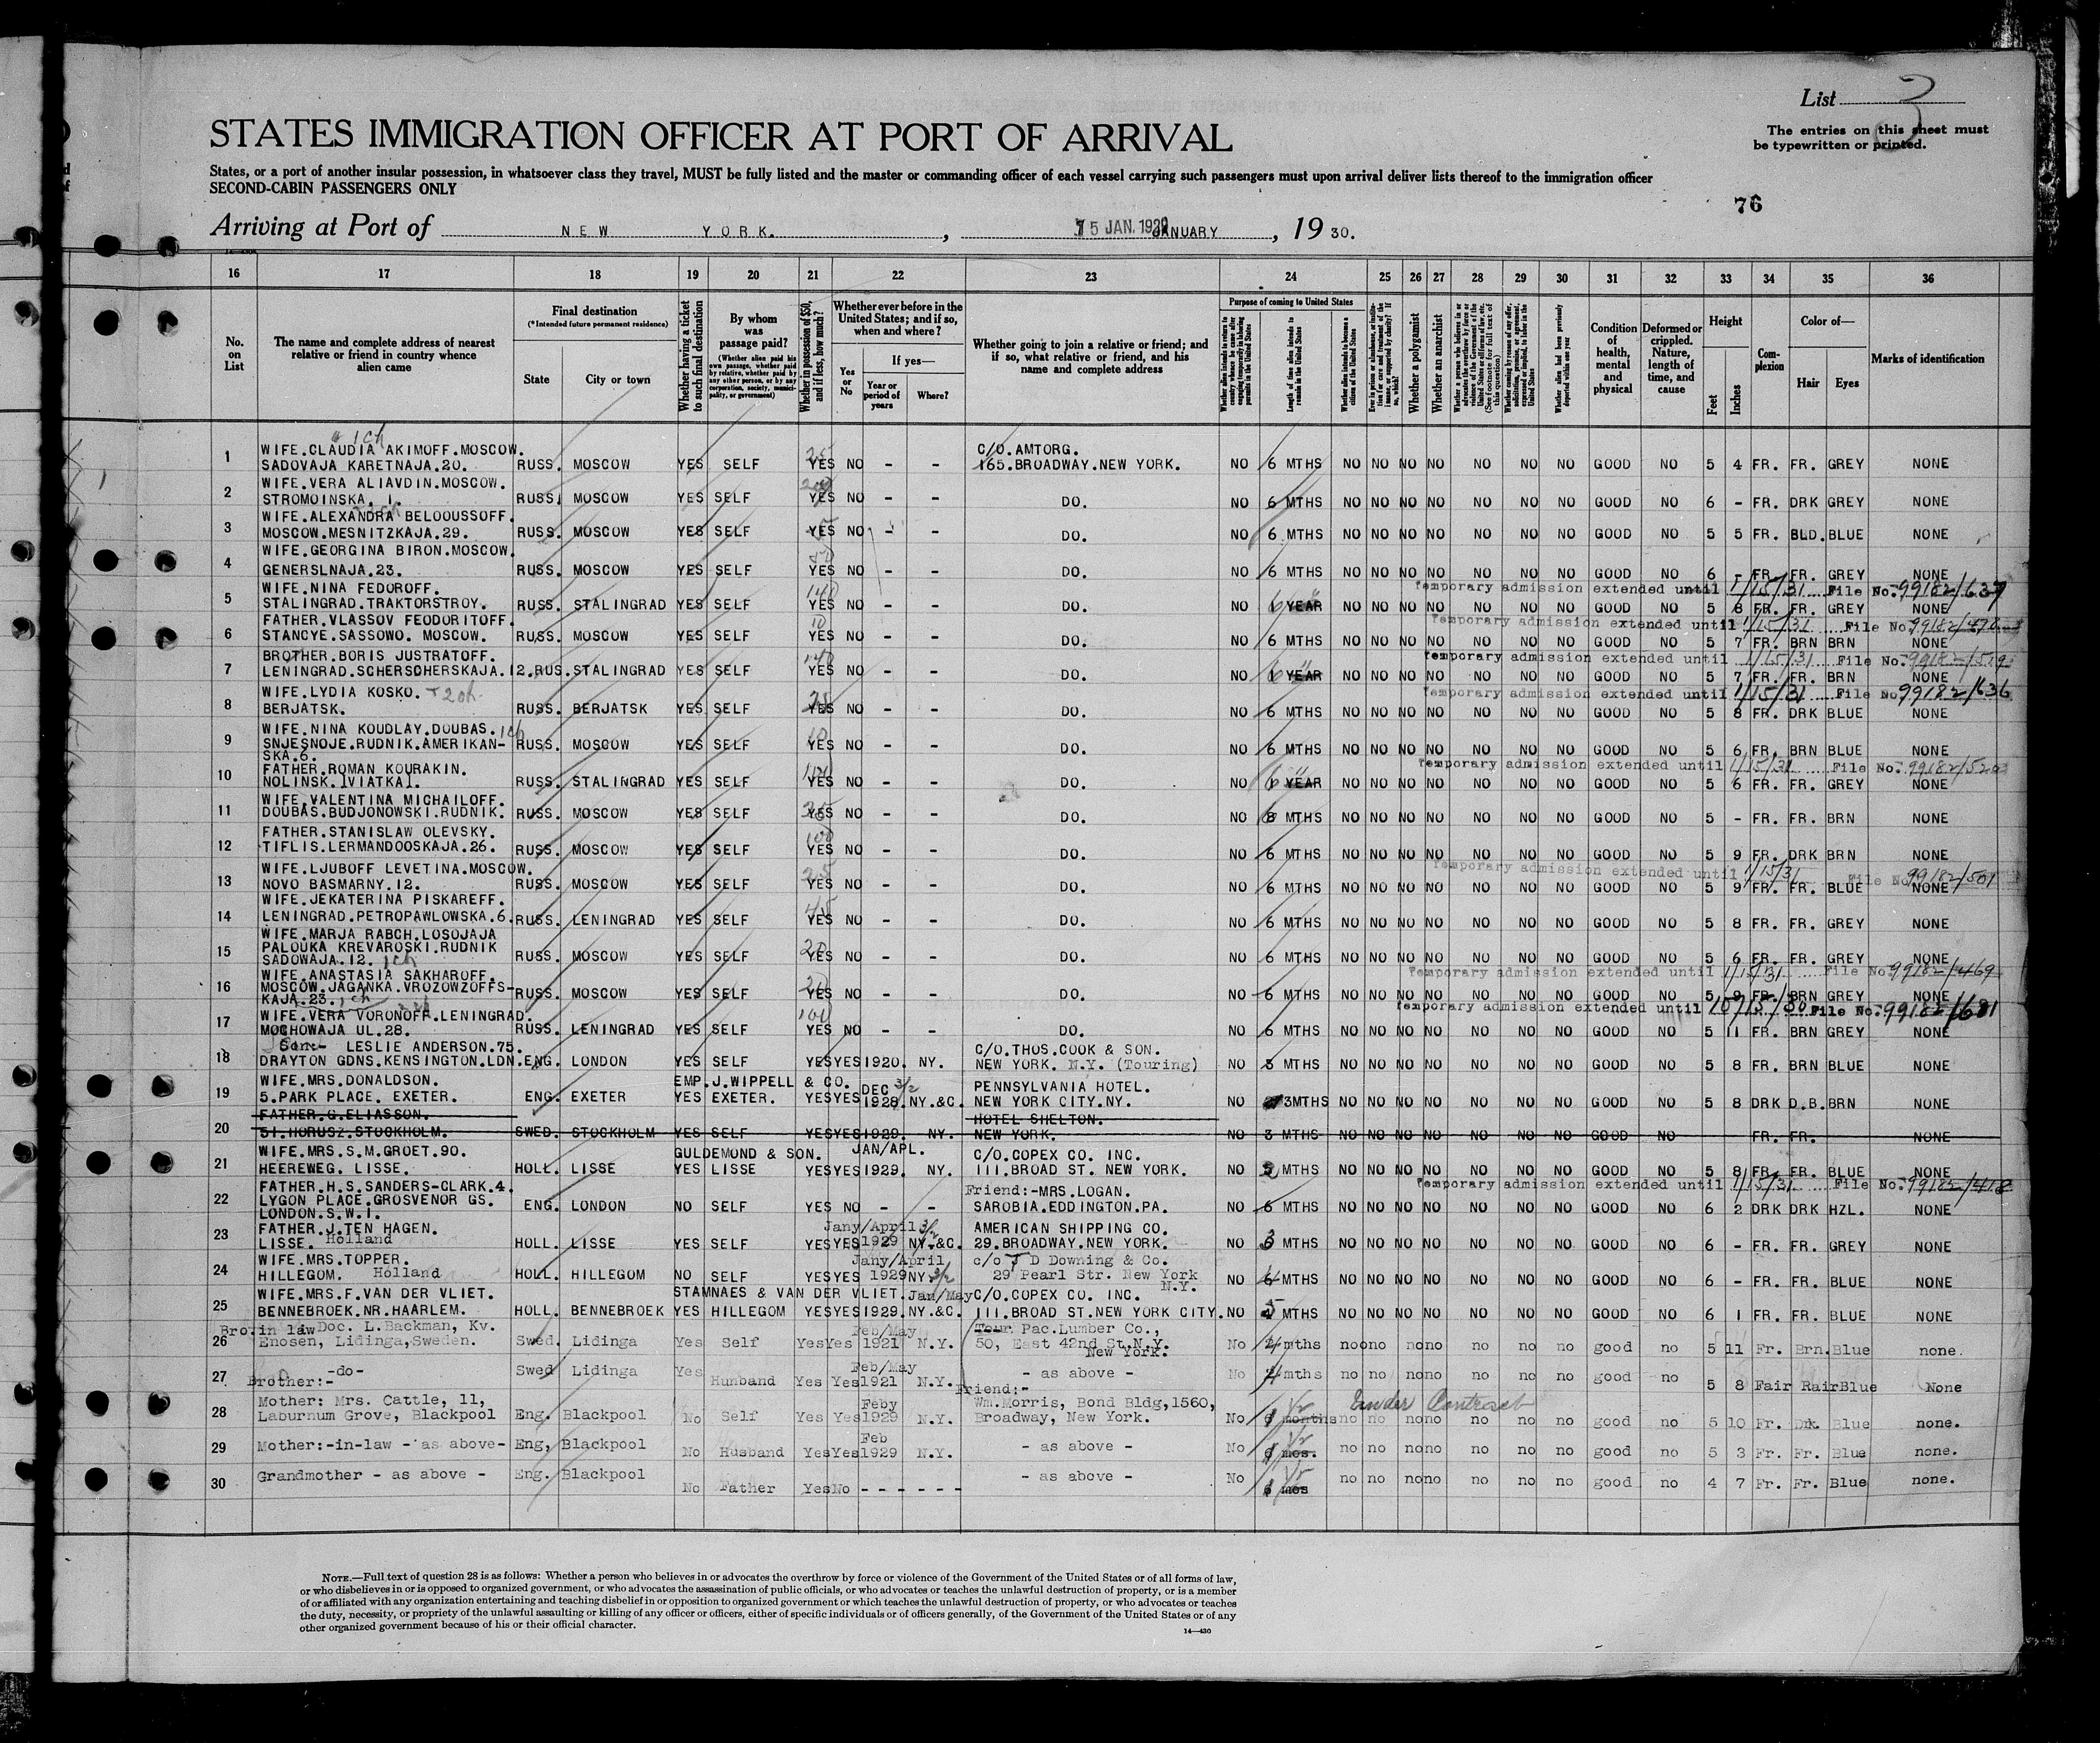 List 3
The entries on this sheet must
be typewritten or printed.
STATES IMMIGRATION OFFICER AT PORT OF ARRIVAL
States, or a port of another insular possession, in whatsoever class they travel, MUST be fully listed and the master or commanding officer of each vessel carrying such passengers must upon arrival deliver lists thereof to the immigration officer
SECOND-CABIN PASSENGERS ONLY
76
Arriving at Port of NEW YORK. , 15 JAN. JANUARY , 19 30.
16 17 18 19 20 21 22 23 24 25 26 27 28 29 30 31 32 33 34 35 36
No. on List
The name and complete address of nearest relative or friend in country whence alien came
Final destination
(*Intended future permanent residence)
State City or town
Whether having a ticket to such final destination
By whom was passage paid?
(Whether alien paid his own passage, whether paid by relative, whether paid by any other person, or by any corporation, society, municipality, or government)
Whether in possession of $50, and if less, how much?
Whether ever before in the United States; and if so, when and where?
Yes or No
If yes—
Year or period of years Where?
Whether going to join a relative or friend; and if so, what relative or friend, and his name and complete address
Purpose of coming to United States
Length of time alien intends to remain in the United States
Whether alien intends to become a citizen of the United States
Whether a polygamist
Whether an anarchist
Whether alien had been previously deported within one year
Condition of health, mental and physical
Deformed or crippled. Nature, length of time, and cause
Height
Feet Inches
Complexion
Color of—
Hair Eyes
Marks of identification
1 WIFE.CLAUDIA AKIMOFF.MOSCOW.
SADOVAJA KARETNAJA.20. RUSS. MOSCOW YES SELF YES NO - - C/O.AMTORG.
165.BROADWAY.NEW YORK. NO 6 MTHS NO NO NO NO NO NO NO GOOD NO 5 4 FR. FR. GREY NONE
2 WIFE.VERA ALIAVDIN.MOSCOW.
STROMOINSKA. 1. RUSS. MOSCOW YES SELF YES NO - - DO. NO 6 MTHS NO NO NO NO NO NO NO GOOD NO 6 - FR. DRK GREY NONE
3 WIFE.ALEXANDRA BELOOUSSOFF.
MOSCOW.MESNITZKAJA.29. RUSS. MOSCOW YES SELF YES NO - - DO. NO 6 MTHS NO NO NO NO NO NO NO GOOD NO 5 5 FR. BLD. BLUE NONE
4 WIFE.GEORGINA BIRON.MOSCOW.
GENERSLNAJA.23. RUSS. MOSCOW YES SELF YES NO - - DO. NO 6 MTHS NO NO NO NO NO NO NO GOOD NO 6 - FR. FR. GREY NONE
Temporary admission extended until 1/15/31 File No. 99182/637
5 WIFE.NINA FEDOROFF.
STALINGRAD.TRAKTORSTROY. RUSS. STALINGRAD YES SELF YES NO - - DO. NO 1 YEAR NO NO NO NO NO NO NO GOOD NO 5 8 FR. FR. GREY NONE
Temporary admission extended until 1/15/31 File No.
6 FATHER.VLASSOV FEODORITOFF.
STANCYE.SASSOWO. MOSCOW. RUSS. MOSCOW YES SELF YES NO - - DO. NO 6 MTHS NO NO NO NO NO NO NO GOOD NO 5 7 FR. BRN BRN NONE
Temporary admission extended until 1/15/31 File No. 99182/519
7 BROTHER.BORIS JUSTRATOFF.
LENINGRAD.SCHERSCHERSKAJA.12. RUS. STALINGRAD YES SELF YES NO - - DO. NO 1 YEAR NO NO NO NO NO NO NO GOOD NO 5 7 FR. FR. BRN NONE
Temporary admission extended until 1/15/31 File No 99182/636
8 WIFE.LYDIA KOSKO. + 2 ch.
BERJATSK. RUSS. BERJATSK YES SELF YES NO - - DO. NO 6 MTHS NO NO NO NO NO NO NO GOOD NO 5 8 FR. DRK BLUE NONE
9 WIFE.NINA KOUDLAY.DOUBAS. 1 ch
SNJESNOJE.RUDNIK.AMERIKAN-
SKA.6. RUSS. MOSCOW YES SELF YES NO - - DO. NO 6 MTHS NO NO NO NO NO NO NO GOOD NO 5 6 FR. BRN BLUE NONE
Temporary admission extended until 1/15/31 File No. 99182/520
10 FATHER.ROMAN KOURAKIN.
NOLINSK.[VIATKA]. RUSS. STALINGRAD YES SELF YES NO - - DO. NO 1 YEAR NO NO NO NO NO NO NO GOOD NO 5 6 FR. FR. GREY NONE
11 WIFE.VALENTINA MICHAILOFF.
DOUBAS.BUDJONOWSKI.RUDNIK. RUSS. MOSCOW YES SELF YES NO - - DO. NO 6 MTHS NO NO NO NO NO NO NO GOOD NO 5 - FR. FR. BRN NONE
12 FATHER.STANISLAW OLEVSKY.
TIFLIS.LERMANDOOSKAJA.26. RUSS. MOSCOW YES SELF YES NO - - DO. NO 6 MTHS NO NO NO NO NO NO NO GOOD NO 5 9 FR. DRK BRN NONE
Temporary admission extended until 1/15/31 File No 99182/501
13 WIFE.LJUBOFF LEVETINA.MOSCOW.
NOVO BASMARNY.12. RUSS. MOSCOW YES SELF YES NO - - DO. NO 6 MTHS NO NO NO NO NO NO NO GOOD NO 5 9 FR. FR. BLUE NONE
14 WIFE.JEKATERINA PISKAREFF.
LENINGRAD.PETROPAWLOWSKA.6. RUSS. LENINGRAD YES SELF YES NO - - DO. NO 6 MTHS NO NO NO NO NO NO NO GOOD NO 5 8 FR. FR. GREY NONE
15 WIFE.MARJA RABCH.LOSOJAJA
PALOUKA KREVAROSKI.RUDNIK
SADOWAJA.12. 1 ch RUSS. MOSCOW YES SELF YES NO - - DO. NO 6 MTHS NO NO NO NO NO NO NO GOOD NO 5 6 FR. FR. GREY NONE
Temporary admission extended until 1/15/31 File No. 99182/469
16 WIFE.ANASTASIA SAKHAROFF.
MOSCOW.JAGANKA.VROZOWZOFFS-
KAJA.23. 1 ch RUSS. MOSCOW YES SELF YES NO - - DO. NO 6 MTHS NO NO NO NO NO NO NO GOOD NO 5 9 FR. BRN GREY NONE
Temporary admission extended until 10/15/30 File No. 99182/601
17 WIFE.VERA VORONOFF.LENINGRAD.
MOCHOWAJA UL.28. RUSS. LENINGRAD YES SELF YES NO - - DO. NO 6 MTHS NO NO NO NO NO NO NO GOOD NO 5 11 FR. BRN GREY NONE
18 Son:- LESLIE ANDERSON.75.
DRAYTON GDNS.KENSINGTON.LDN. ENG. LONDON YES SELF YES YES 1920. NY. C/O.THOS.COOK & SON.
NEW YORK. N.Y. (Touring) NO 3 MTHS NO NO NO NO NO NO NO GOOD NO 5 8 FR. BRN BLUE NONE
19 WIFE.MRS.DONALDSON.
5.PARK PLACE. EXETER. ENG. EXETER YES EMP.J.WIPPELL & CO. EXETER. YES YES DEC 3/2 1928. NY.&C. PENNSYLVANIA HOTEL.
NEW YORK CITY.NY. NO 3MTHS NO NO NO NO NO NO NO GOOD NO 5 8 DRK D.B. BRN NONE
20 FATHER.G.ELIASSON.
51.HORUSZ.STOCKHOLM. SWED. STOCKHOLM YES SELF YES YES 1929. NY. HOTEL SHELTON.
NEW YORK. NO 3 MTHS NO NO NO NO NO NO NO GOOD NO FR. FR. NONE
21 WIFE.MRS.S.M.GROET.90.
HEEREWEG. LISSE. HOLL. LISSE YES GULDEMOND & SON. LISSE YES YES JAN/APL. 1929. NY. C/O.COPEX CO. INC.
111.BROAD ST. NEW YORK. NO MTHS NO NO NO NO NO NO NO GOOD NO 5 8 FR. FR. BLUE NONE
Temporary admission extended until 1/15/31 File No. 99182/418
22 FATHER.H.S.SANDERS-CLARK.4.
LYGON PLACE.GROSVENOR GS.
LONDON.S.W.1. ENG. LONDON NO SELF YES NO - - Friend:-MRS.LOGAN.
SAROBIA.EDDINGTON.PA. NO 6 MTHS NO NO NO NO NO NO NO GOOD NO 6 2 DRK DRK HZL. NONE
23 FATHER.J.TEN HAGEN.
LISSE. Holland HOLL. LISSE YES SELF YES YES Jany/April 3/2 1929 NY.&C. AMERICAN SHIPPING CO.
29.BROADWAY.NEW YORK. NO 3 MTHS NO NO NO NO NO NO NO GOOD NO 6 - FR. FR. GREY NONE
24 WIFE.MRS.TOPPER.
HILLEGOM. Holland HOLL. HILLEGOM NO SELF YES YES Jany/April 1929 NY 3/2 c/o J D Downing & Co.
29 Pearl Str. New York
N.Y. NO 6 MTHS NO NO NO NO NO NO NO GOOD NO 6 - FR. FR. BLUE NONE
25 WIFE.MRS.F.VAN DER VLIET.
BENNEBROEK.NR.HAARLEM. HOLL. BENNEBROEK YES STAMNAES & VAN DER VLIET. HILLEGOM YES YES Jan/May 1929. NY.&C. C/O.COPEX CO. INC.
111.BROAD ST.NEW YORK CITY. NO MTHS NO NO NO NO NO NO NO GOOD NO 6 1 FR. FR. BLUE NONE
26 Bro in law Doc. L.Backman, Kv.
Enosen, Lidinga,Sweden. Swed. Lidinga Yes Self Yes Yes Feb/May 1921 N.Y. Pac.Lumber Co.,
50, East 42nd St.N.Y.
New York. No mths no no no no no no no good no 5 11 Fr. Brn. Blue none.
27 -do-
Brother:- Swed Lidinga Yes Husband Yes Yes Feb/May 1921 N.Y. - as above - No mths no no no no no no no good no 5 8 Fair Rair Blue None
28 Mother: Mrs. Cattle, 11,
Laburnum Grove, Blackpool Eng. Blackpool No Self Yes Yes Feby 1929 N.Y. Friend:-
Wm.Morris, Bond Bldg,1560,
Broadway, New York. No 1 yr months no no no no no no no good no 5 10 Fr. Dk. Blue none.
Under Contract
29 Mother:-in-law - as above- Eng, Blackpool No Husband Yes Yes Feb 1929 N.Y. - as above - No 1 yr mos. no no no no no no no good no 5 3 Fr. Fr. Blue none.
30 Grandmother - as above - Eng. Blackpool No Father Yes No - - - - - - - as above - No 1 yr mos no no no no no no no good no 4 7 Fr. Fr. Blue none.
NOTE.—Full text of question 28 is as follows: Whether a person who believes in or advocates the overthrow by force or violence of the Government of the United States or of all forms of law,
or who disbelieves in or is opposed to organized government, or who advocates the assassination of public officials, or who advocates or teaches the unlawful destruction of property, or is a member
of or affiliated with any organization entertaining and teaching disbelief in or opposition to organized government or which teaches the unlawful destruction of property, or who advocates or teaches
the duty, necessity, or propriety of the unlawful assaulting or killing of any officer or officers, either of specific individuals or of officers generally, of the Government of the United States or of any
other organized government because of his or their official character.
14—430